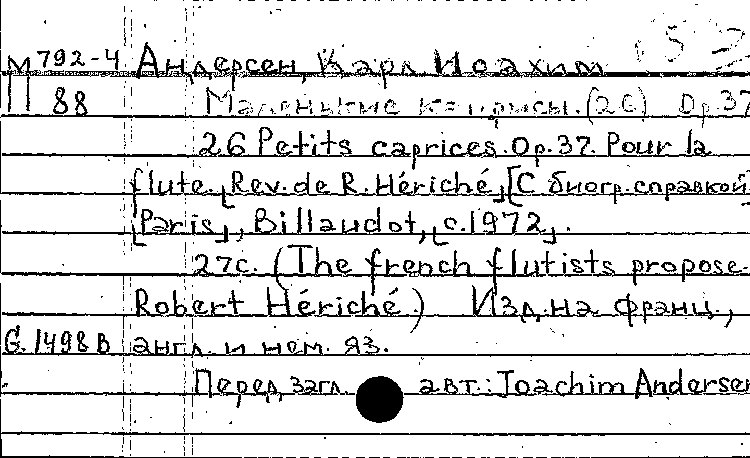 М 792-4 Андерсен, Карл Иоахим
П 88 Маленькие капризы. (26) Op. 37
26 Petits caprices. Op. 37. Pour la
flute. [Rev. de R. Hériché] [С биогр. справкой]
[Paris], Billaudot, [c. 1972].
27с. (The french flutists propose.
Robert Hériché.) Изд. на франц.,
G. 1498 B англ. и нем. яз.
Перед загл. авт.: Joachim Andersen